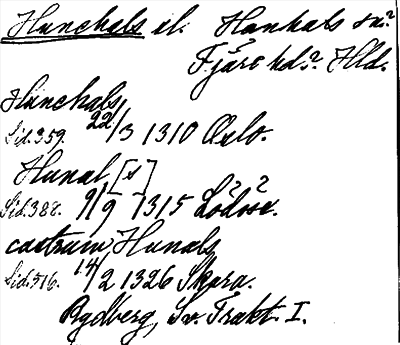 Hunehals el. Hanhals sn?
Fjäre hd? Hld.
Hunehals,
Sid. 359. 22/3 1310 Oslo.
Hunal [s]
Sid. 388. 9/9 1315 Lödöse.
castrum Hunals
Sid. 516. 14/2 1326 Skara.
Rydberg, Sv. Trakt. I.